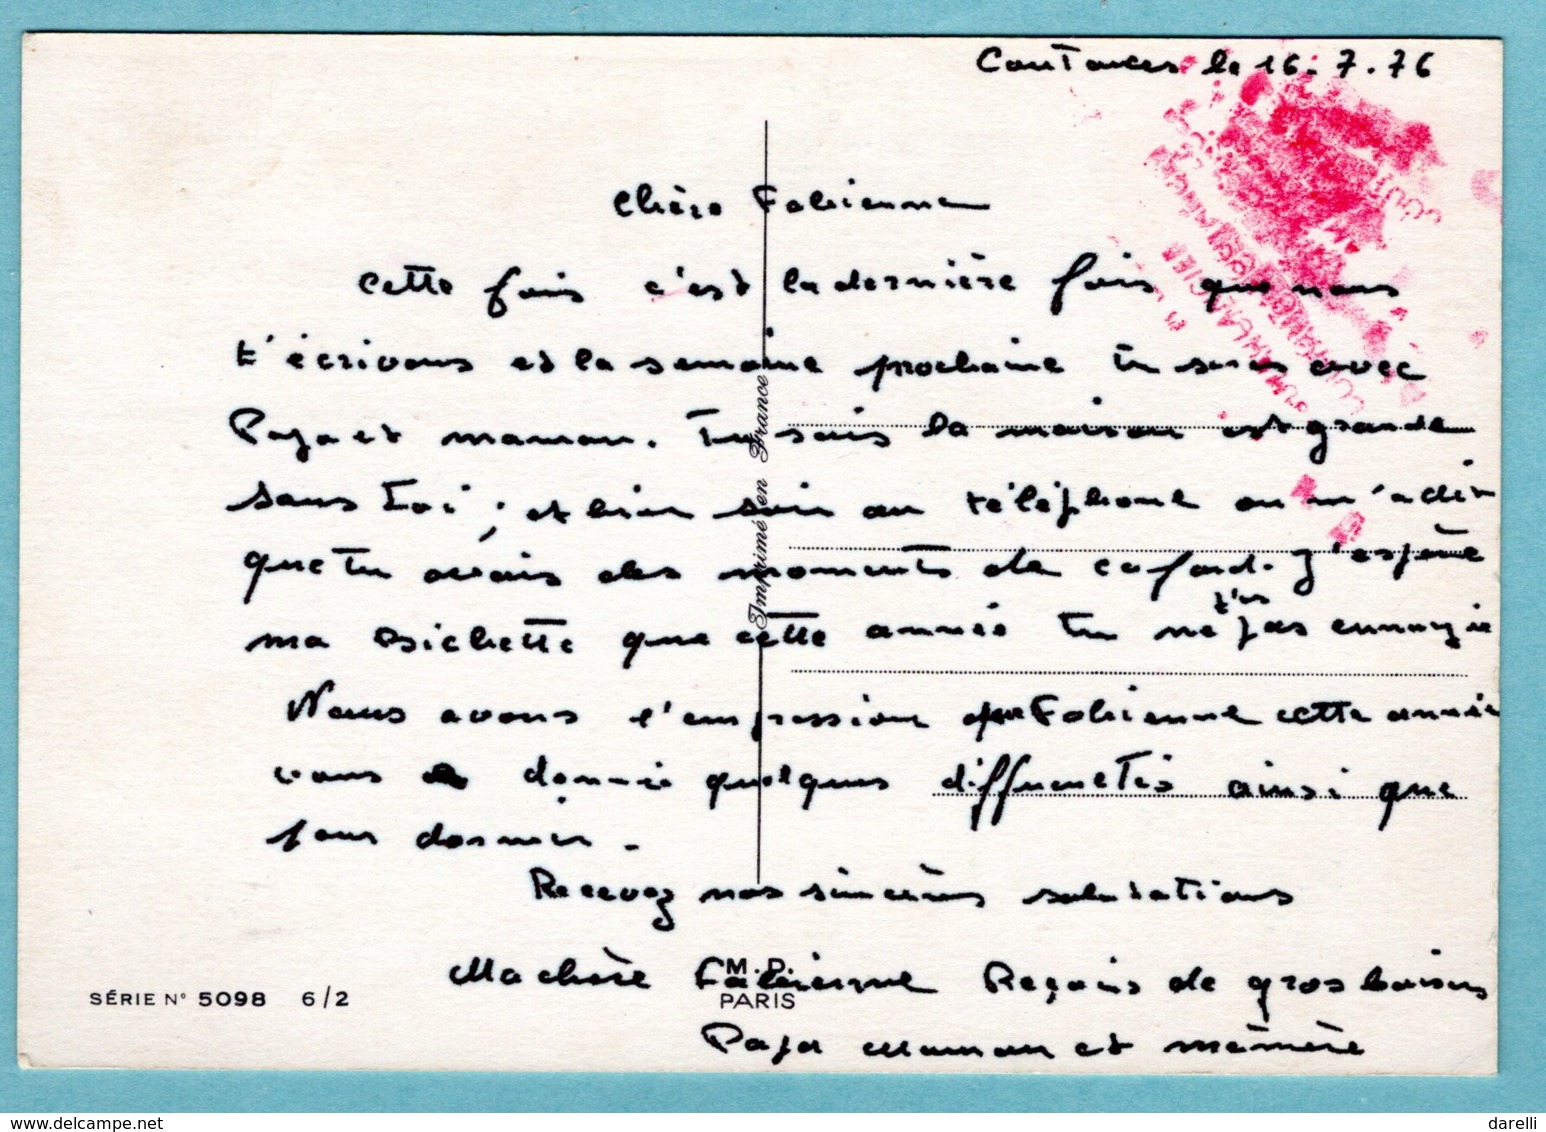 Coutances le 16.7.76
Chère Fabienne
cette fois c'est la dernière fois que nous
t'écrivons et la semaine prochaine tu seras avec
Papa et maman. Tu sais la maison est grande
sans toi ; et hier soir au téléphone on m'a dit
que tu avais des moments de cafard. J'espère
ma Bichette que cette année tu ne t'es pas ennuyée
Nous avons l'impression que Fabienne cette année
vous a donnée quelques difficultés ainsi que
pour dormir.
Recevez nos sincères salutations
Ma chère Fabienne Reçois de gros baisers
Papa maman et mémère
Imprimé en France
M.D.
PARIS
SÉRIE N° 5098 6/2
darelli